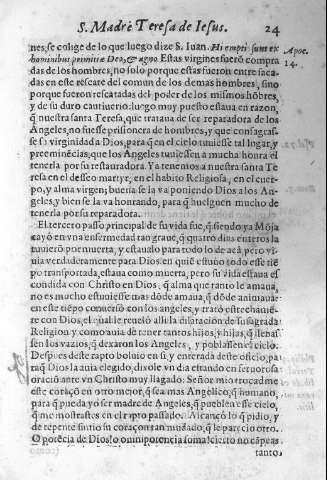 S. Madre Teresa de Iesus. 24
nes, se colige de lo que luego dize S. Iuan. Hi empti sunt ex Apoc.
hominibus primitiæ Deo, & agno. Estas virgines fuerō compra 14.
das de los hombres, no solo porque estas fueron entresaca-
das en este rescate del comun de los demas hombres, sino
porque fueron rescatadas del poder de los mismos hōbres,
y de su duro cautiuerio: luego muy puesto estaua en razon,
q̃ nuestra santa Teresa, que trataua de ser reparadora de los
Angeles, no fuesse prisionera de hombres, y que consagras-
se su virginidad a Dios, para q̃ en el cielo tuuiesse tal lugar, y
preeminẽcias, que los Angeles tuuiessen a mucha honra el
tenerla por su restauradora. Ya tenemos a nuestra santa Te
resa en el desseo martyr, en el habito Religiosa, en el cuer-
po, y alma virgen; buena se la va poniendo Dios a los An-
geles, y bien se la va honrando, para q̃ huelguen mucho de
tenerla por su reparadora.
El tercero passo principal de su vida fue, q̃ siendo ya Mōja
cayó en vna enfermedad tan graue, q̃ quatro dias enteros la
tuuierō por muerta, y estaualo para todo lo de acá pero vi-
uia verdaderamente para Dios, en quiẽ estuuo todo esse tiẽ
po transportada, estaua como muerta, pero su vida estaua es
condida con Christo en Dios, q̃ alma que tanto le amaua,
no es mucho estuuiesse mas dōde amaua, q̃ dōde animaua:
en este tiẽpo conuersó con los angeles, y trató estrechamẽ-
te con Dios, el qual le reueló alli la dilatacion de su sagrada
Religion y como auia de tener tantos hijos, y hijas, q̃ llenas-
sen los vazios, q̃ dexaron los Angeles, y poblassen q̃l cielo.
Despues deste rapto boluio en si, y enterada deste oficio, pa
raq̃ Dios la auia elegido, dixole vn dia estando en feruorosa
oracio ante vn Christo muy llagado. Señor mio trocadme
este coraçō en otro mejor, q̃ sea mas Angelico, q̃ humano,
para q̃ pueda yo ser madre de Angeles, q̃ pueblen esse cielo,
que me mostrastes en el rapto passado. Alcançó lo q̃ pidio, y
de repente sintio su coraçon tan mudado, q̃ le parecio otro.
O potẽcia de Dios! o omnipotencia suma! cierto no cāpeas
tanto